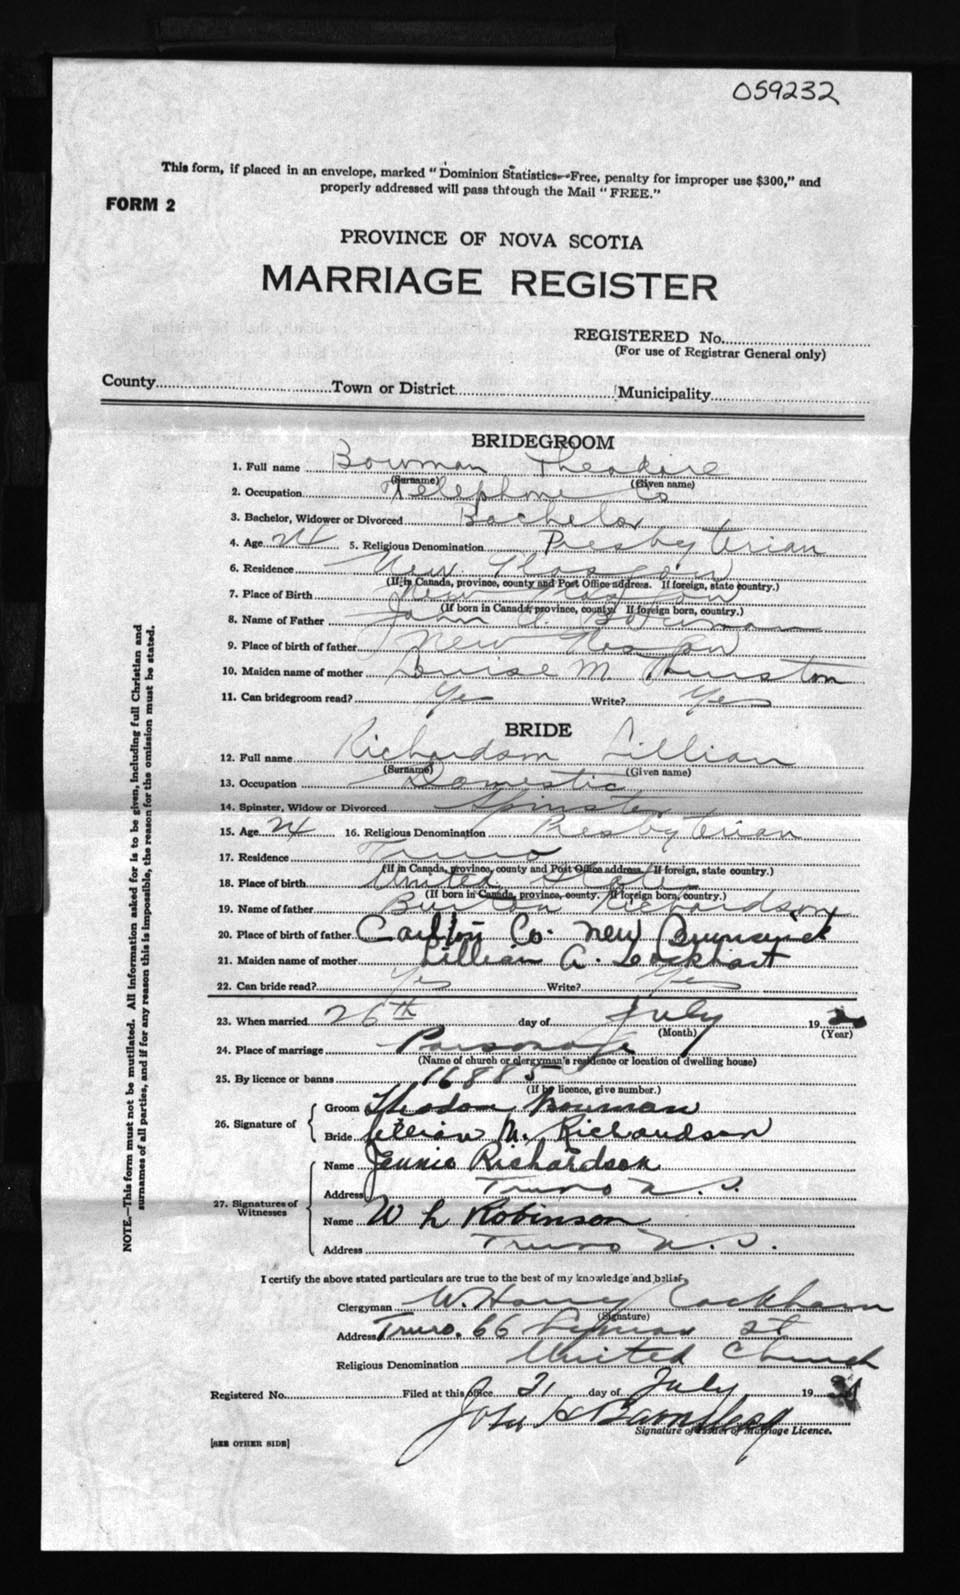 059232
This form, if placed in an envelope, marked "Dominion Statistics—Free, penalty for improper use $300," and
properly addressed will pass through the Mail "FREE."
FORM 2
PROVINCE OF NOVA SCOTIA
MARRIAGE REGISTER
REGISTERED No.
(For use of Registrar General only)
County Town or District Municipality
BRIDEGROOM
1. Full name Bowman Theodore
(Surname) (Given name)
2. Occupation Telephone Co
3. Bachelor, Widower or Divorced Bachelor
4. Age 24 5. Religious Denomination Presbyterian
6. Residence New Glasgow
(If in Canada, province, county and Post Office address. If foreign, state country.)
7. Place of Birth New Glasgow
(If born in Canada, province, county. If foreign born, country.)
8. Name of Father John Bowman
9. Place of birth of father New Glasgow
10. Maiden name of mother Louise M Thurston
11. Can bridegroom read? Yes Write? Yes
BRIDE
12. Full name Richardson Lillian
(Surname) (Given name)
13. Occupation Domestic
14. Spinster, Widow or Divorced Spinster
15. Age 24 16. Religious Denomination Presbyterian
17. Residence Truro
(If in Canada, province, county and Post Office address. If foreign, state country.)
18. Place of birth United States
(If born in Canada, province, county. If foreign born, country.)
19. Name of father Burton Richardson
20. Place of birth of father Co. New Brunswick
21. Maiden name of mother Lillian A. Lockhart
22. Can bride read? Yes Write? Yes
23. When married 26th day of July 19
(Month) (Year)
24. Place of marriage Parsonage
(Name of church or clergyman's residence or location of dwelling house)
25. By licence or banns 16885
(If by licence, give number.)
26. Signature of
Groom Theodore Bowman
Bride Lillian M. Richardson
27. Signatures of Witnesses
Name Jennie Richardson
Address Truro N. S.
Name W L Robinson
Address Truro N. S.
I certify the above stated particulars are true to the best of my knowledge and belief.
Clergyman W. Harry Rackham
(Signature)
Address Truro. 66 St
Religious Denomination United Church
Registered No. Filed at this office 21 day of July 19
John
Signature of Issuer of Marriage Licence.
[SEE OTHER SIDE]
NOTE.—This form must not be mutilated. All information asked for is to be given, including full Christian and
surnames of all parties, and if for any reason this is impossible, the reason for the omission must be stated.